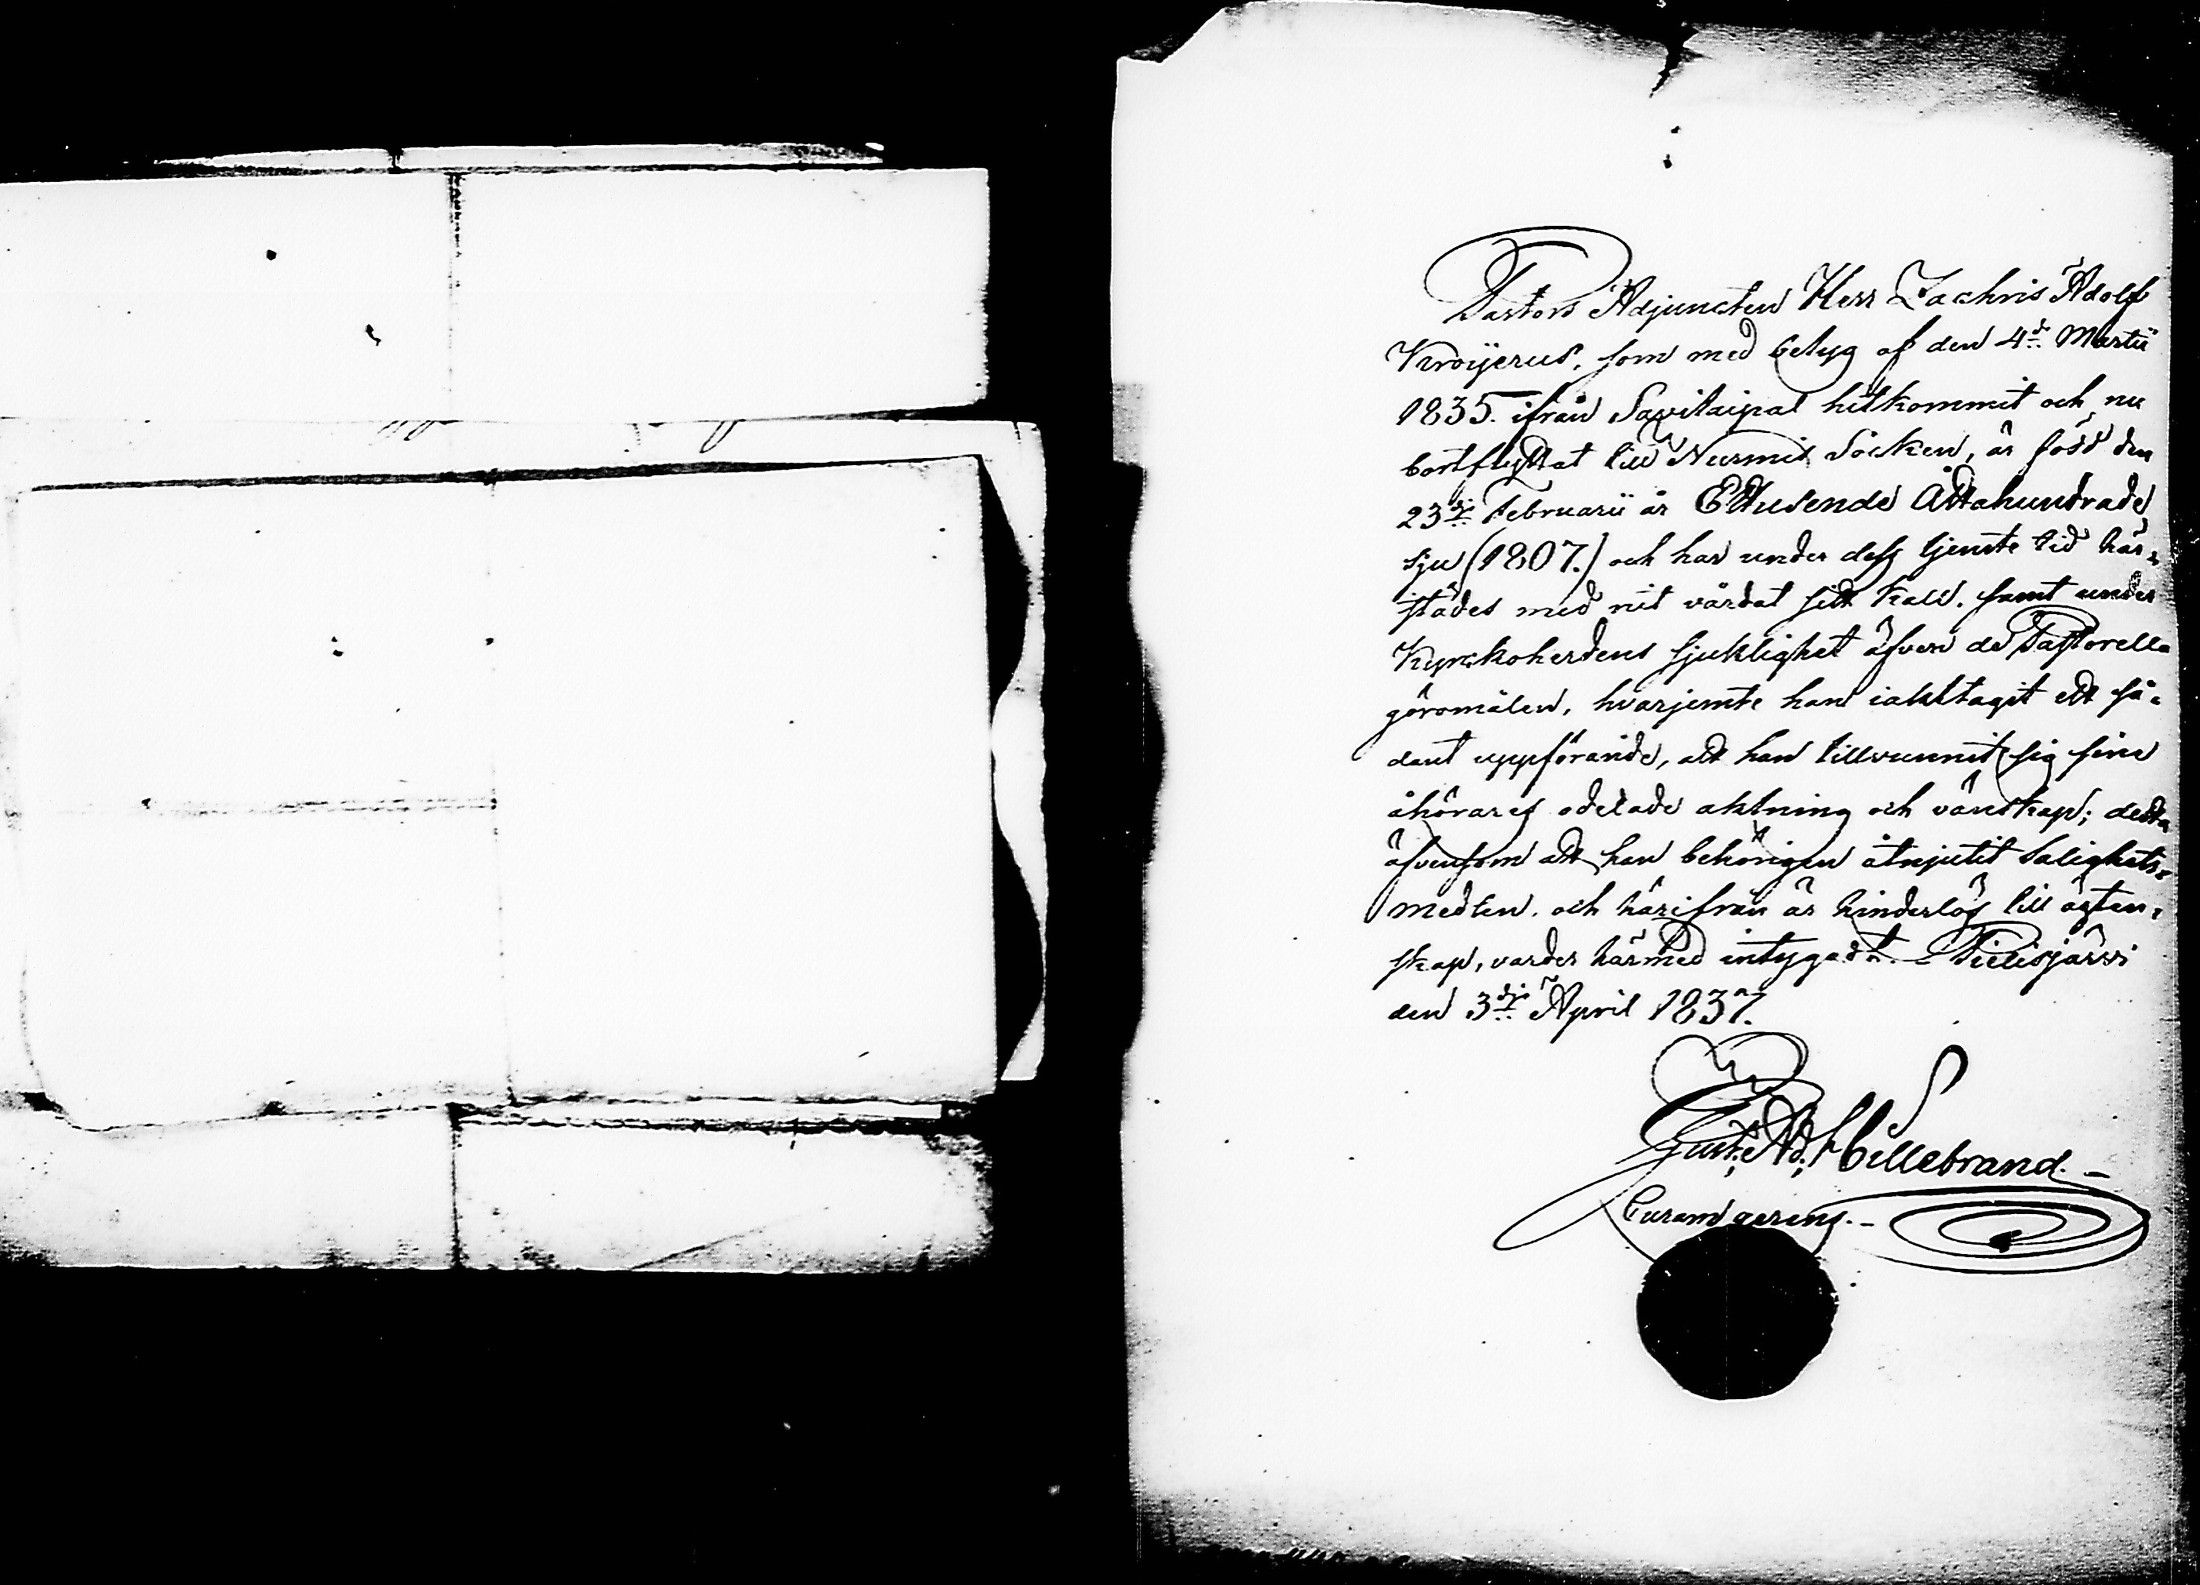 Pastors Adjuncten Herr Zachris Adolf
Kroijerus, som med betyg af den 4de Martii
1835. ifrån Savitaipal hitkommit och nu
bortflyttat till Nurmis Socken, är född den
23dje Februarii år Ettusende Åttahundrade
sju (1807.) och har under dess tjenste tid här-
städes med nit vårdat sitt kall, samt under
Kyrckoherdens sjuklighet äfven de Pastorella
göromålen, hvarjemte han iakttagit ett så-
dant uppförande, att han tillvunnit sig sine
åhörares odelade aktning och vänskap; detta
äfvensom att han behörigen åtnjutit Salighets-
medlen, och härifrån är hinderlös till ägten-
skap, varder härmed intygadt. Pielisjärvi
den 3dje April 1837.
Gust: Ad: Hillebrand.
Curam gerens.